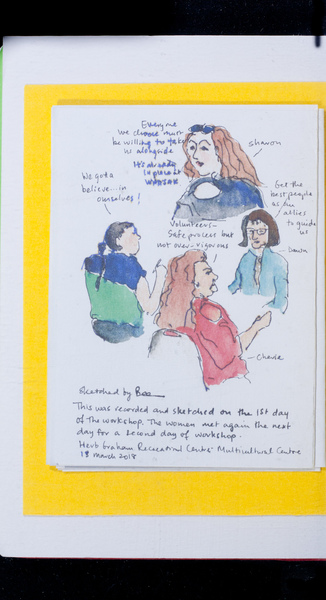 Everyone
we choose must
be willing to take
us alongside
It's already
in place at
sharon
We gotta
believe...in
ourselves!
Get the
best people
as our
allies
to guide
us
Volunteers-
Safe process but
not over-vigorous
Cherie
Sketched by Bee
This was recorded and sketched on the 1st day
of the workshop. The women met again the next
day for a second day of workshop.
Herb Graham Recreational Centre - Multicultural Centre
18 march 2018